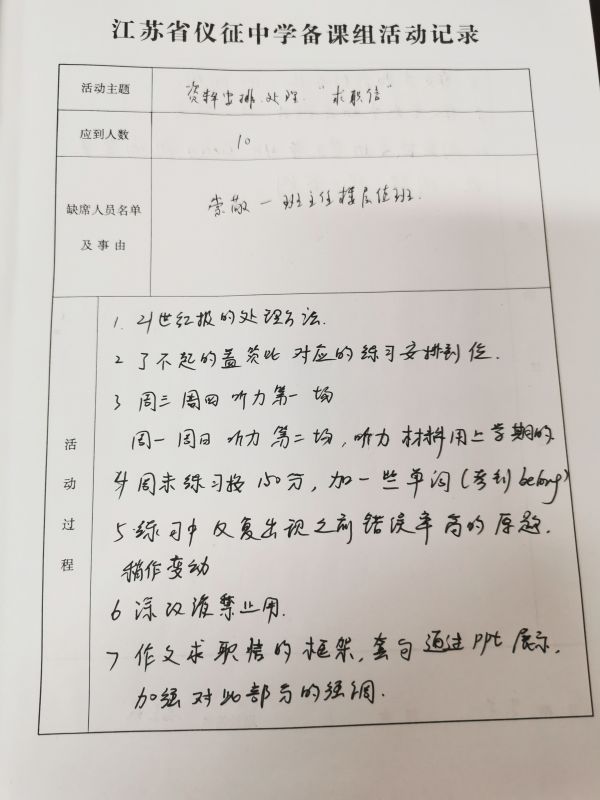 江苏省仪征中学备课组活动记录
活动主题
资料安排.处理."求职信"
应到人数
10
缺席人员名单
及事由
崇敬一班主任楼层值班.
活动过程
1. 21世纪报的处理方法.
2 了不起的盖茨比 对应的练习安排到位.
3 周三 周四 听力第一场
周一 周日 听力 第二场，听力材料用上学期的
4 周末练习按150分，加一些单词(考到belong)
5 练习中 反复出现之前错误率高的原题.
稍作变动
6 涂改液禁止用.
7 作文求职信的框架,套句通过PPt展示,
加强对此部分的强调.